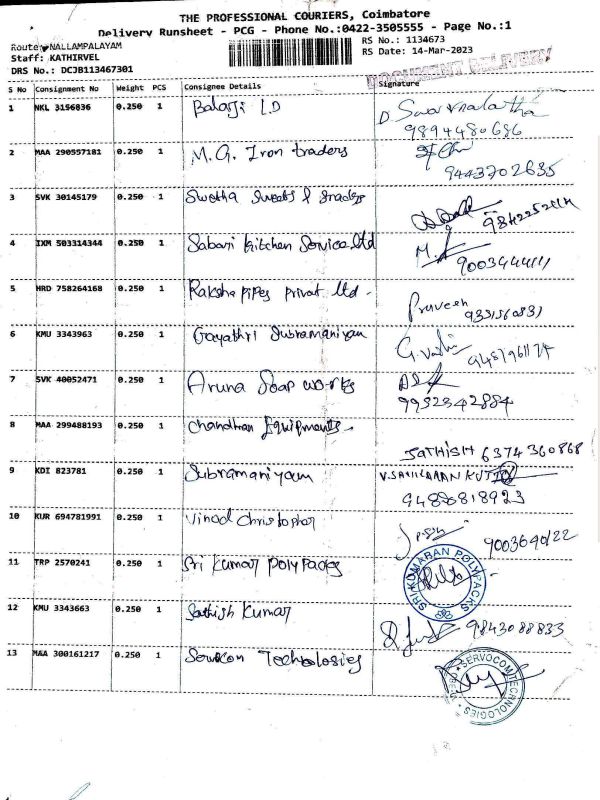 THE PROFESSIONAL COURIERS, Coimbatore
Delivery Runsheet - PCG - Phone No.:0422-3505555 - Page No.:1
Route: NALLAMPALAYAM RS No.: 1134673
Staff: KATHIRVEL RS Date: 14-Mar-2023
DRS No.: DCJB113467301 DOCUMENT DELIVERY
S No Consignment No Weight PCS Consignee Details Signature
1 NKL 3196036 0.250 1 Balaji I.D D. Swarnalatha
9894480686
2 MAA 290557181 0.250 1 M.G. Iron traders
9443702635
3 SVK 30145179 0.250 1 Swetha Sweets & snacks
4 IXM 503314344 0.250 1 Sabari kitchen Service ltd
9003444111
5 HRD 758264168 0.250 1 Raksha pipes privat ltd. Praveen
6 KMU 3343963 0.250 1 Gayathri Subramaniyan
7 SVK 40052471 0.250 1 Aruna Soap works
9952342884
8 MAA 299488193 0.250 1 Chandhan Equipments
SATHISH 6374360868
9 KDI 823781 0.250 1 Subramaniyam
9486818923
10 KUR 694781991 0.250 1 Vinod Christopher
9003640122
11 TRP 2570241 0.250 1 Sri Kumar Poly Packs SRI KUMARAN POLYPACKS
12 KMU 3343663 0.250 1 Sathish Kumar
9843088833
13 MAA 300161217 0.250 1 Servocon Technologies SERVOCOM TECHNOLOGIES